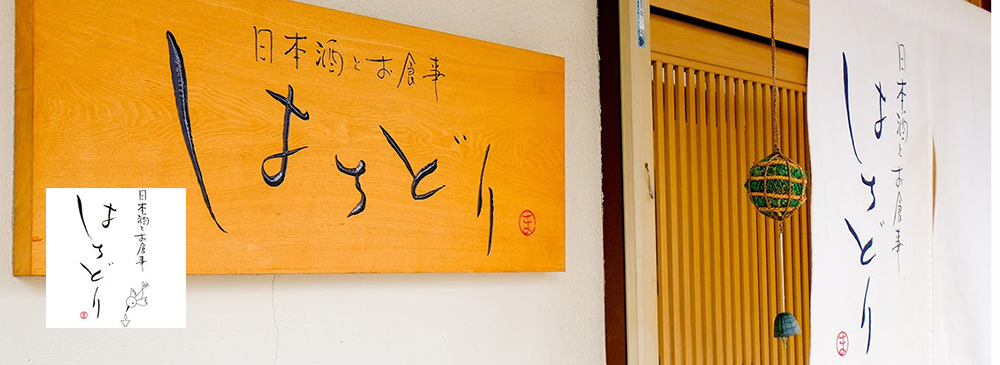 日本酒とお食事
はちどり
ま
日本酒とお食事
はちどり
日本酒とお食事
はちどり
ま